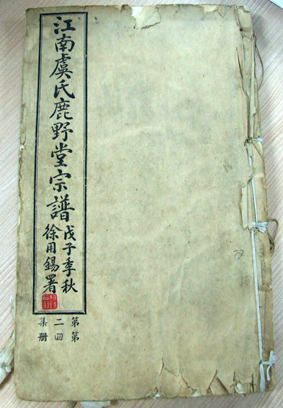 江南虞氏鹿野堂宗譜
戊子季秋
徐用錫署
第二集
第四册